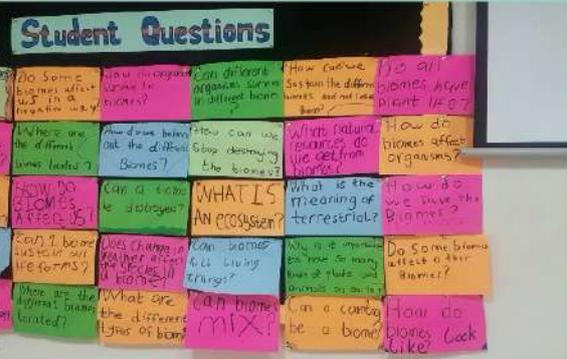 Student Questions
Do Some
biomes affect
us in a
negative way?
How do organisms
in
biomes?
Can different
organisms survive
in different biome
?
How can we
Sustain the different
biomes and not lose
them?
Do all
biomes have
plant life?
Where are
the different
biomes located?
How do we
out the different
Biomes?
How can we
Stop destroying
the biomes?
What natural
resources do
we get from
biomes?
How do
biomes affect
organisms?
HOW DO
BIOMES
AFFECT US?
Can a biome
be destroyed?
WHAT IS
AN ecosystem?
What is the
meaning of
terrestrial?
How do
we save the
Biomes?
Can 1 biome
sustain all
life forms?
Does change in
weather affect
the species in
a biome?
Can biomes
kill living
things?
Why is it important
to have so many
kinds of plants and
animals on earth?
Do Some biomes
affect other
Biomes?
Where are the
different biomes
located?
What are
the different
types of biomes
Can biomes
MIX?
Can a country
be a biome?
How do
biomes Look
Like?